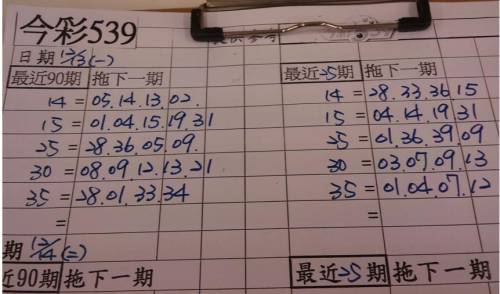 今彩539
日期12/13(一)
最近90期 拖下一期
14 = 05.14.13.02.
15 = 01.04.15.19.31
25 = 28.36.05.09.
30 = 08.09.12.13.21
35 = 28.01.33.34
=
期 12/14 (二)
近90期 拖下一期
最近25期 拖下一期
14 = 28.33.36.15
15 = 04.14.19.31
25 = 01.36.39.09
30 = 03.07.09.13
35 = 01.04.07.12
=
最近25期 拖下一期